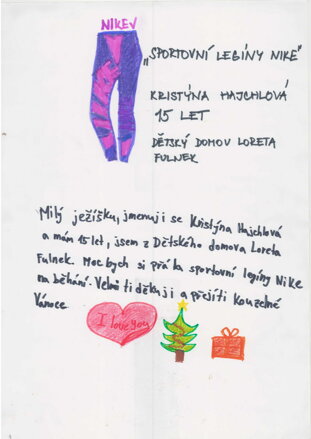 NIKE✓
„SPORTOVNÍ LEGÍNY NIKE"
KRISTÝNA HAJCHLOVÁ
15 LET
DĚTSKÝ DOMOV LORETA
FULNEK
Milý ježíšku, jmenuji se Kristýna Hajchlová
a mám 15 let, jsem z Dětského domova Loreta
Fulnek. Moc bych si přála sportovní legíny Nike
na běhání. Velmi ti děkuji a přeji ti kouzelné
Vánoce.
I love you